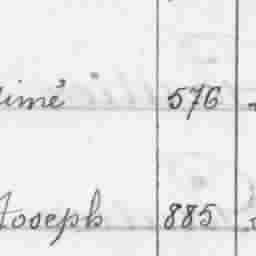 imé 576
Joseph 885